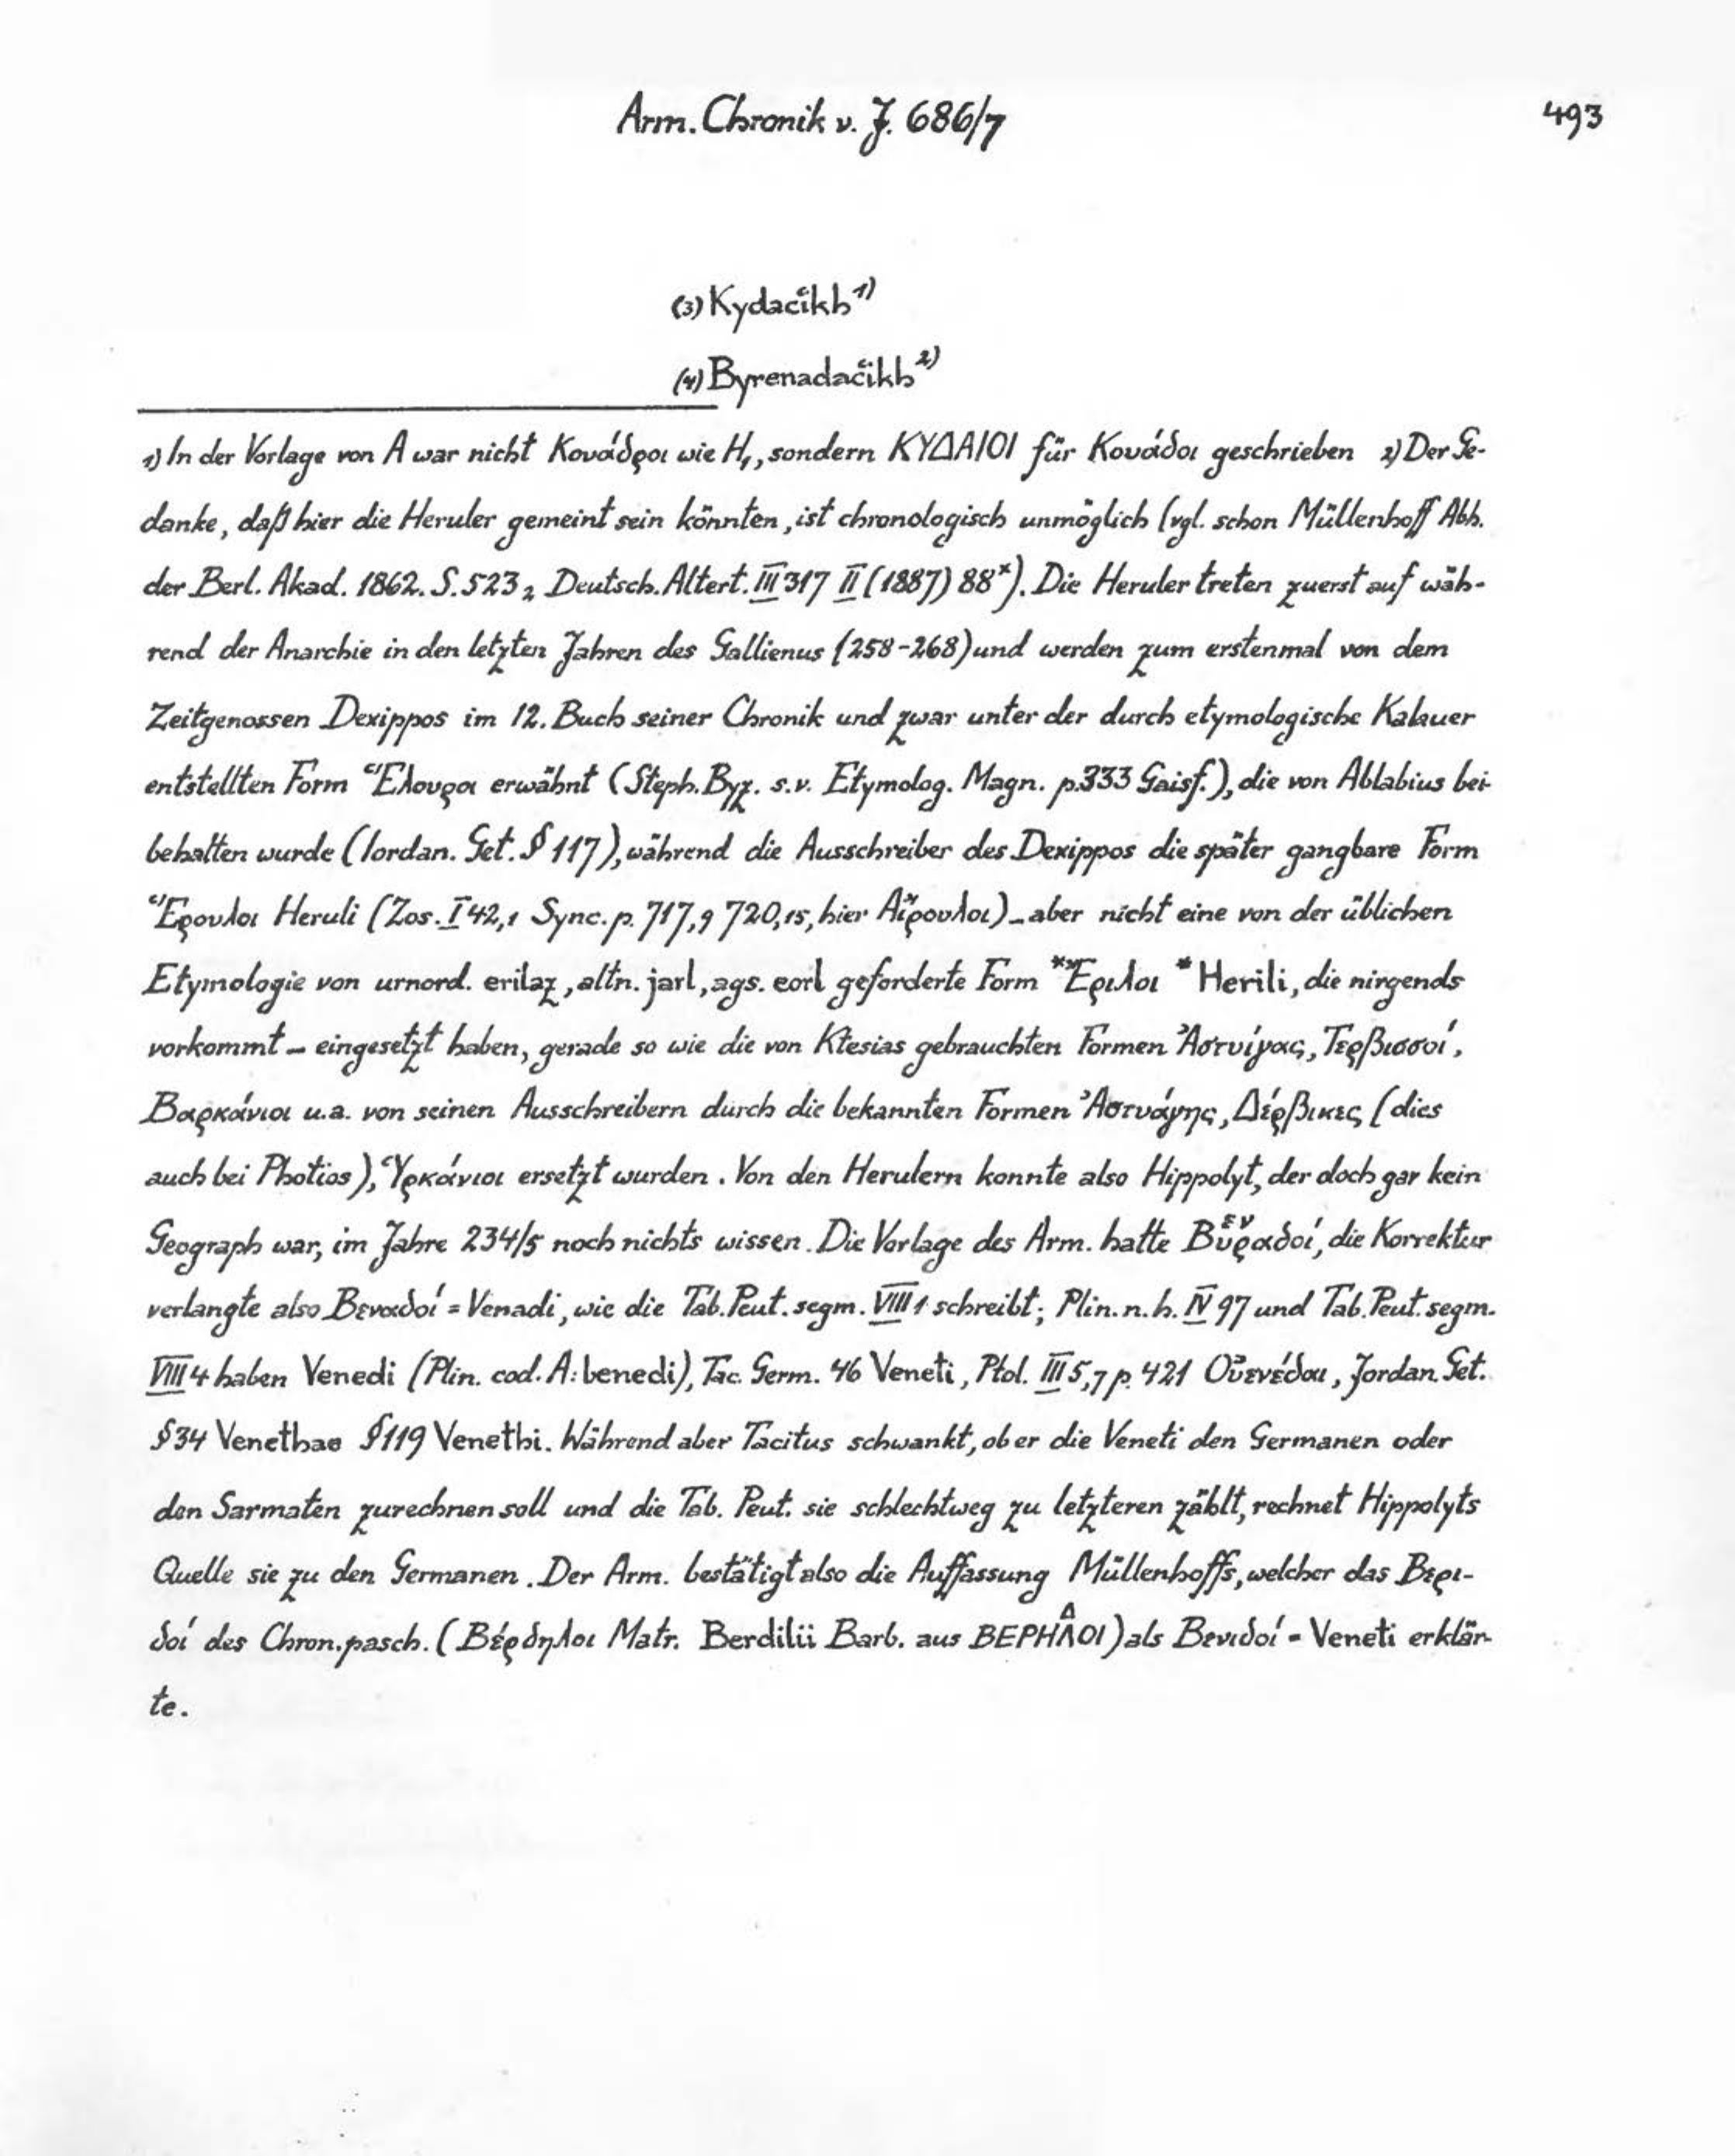 Arm. Chronik v. J. 686/7
493
(3) Kydačikh¹⁾
(4) Byrenadačikh²⁾
1) In der Vorlage von A war nicht Κουάδροι wie H₁, sondern ΚΥΔΑΙΟΙ für Κουάδοι geschrieben 2) Der Ge-
danke, daß hier die Heruler gemeint sein könnten, ist chronologisch unmöglich (vgl. schon Müllenhoff Abh.
der Berl. Akad. 1862. S. 523₂ Deutsch. Altert. III 317 II (1887) 88*). Die Heruler treten zuerst auf wäh-
rend der Anarchie in den letzten Jahren des Gallienus (258-268) und werden zum erstenmal von dem
Zeitgenossen Dexippos im 12. Buch seiner Chronik und zwar unter der durch etymologische Kalauer
entstellten Form Ἕλουροι erwähnt (Steph. Byz. s.v. Etymolog. Magn. p. 333 Gaisf.), die von Ablabius bei-
behalten wurde (Iordan. Get. § 117), während die Ausschreiber des Dexippos die später gangbare Form
Ἕρουλοι Heruli (Zos. I 42,1 Sync. p. 717,9 720,15, hier Αἴρουλοι) – aber nicht eine von der üblichen
Etymologie von urnord. erilaz, altn. jarl, ags. eorl geforderte Form *Ἔριλοι *Herili, die nirgends
vorkommt – eingesetzt haben, gerade so wie die von Ktesias gebrauchten Formen Ἀστυίγας, Τερβισσοί,
Βαρκάνιοι u.a. von seinen Ausschreibern durch die bekannten Formen Ἀστυάγης, Δέρβικες (dies
auch bei Photios), Ὑρκάνιοι ersetzt wurden. Von den Herulern konnte also Hippolyt, der doch gar kein
Geograph war, im Jahre 234/5 noch nichts wissen. Die Vorlage des Arm. hatte Βυ^{εν}ραδοί, die Korrektur
verlangte also Βεναδοί = Venadi, wie die Tab. Peut. segm. VIII 1 schreibt; Plin. n. h. IV 97 und Tab. Peut. segm.
VIII 4 haben Venedi (Plin. cod. A: benedi), Tac. Germ. 46 Veneti, Ptol. III 5,7 p. 421 Οὐενέδαι, Jordan. Get.
§ 34 Venethae § 119 Venethi. Während aber Tacitus schwankt, ob er die Veneti den Germanen oder
den Sarmaten zurechnen soll und die Tab. Peut. sie schlechtweg zu letzteren zählt, rechnet Hippolyts
Quelle sie zu den Germanen. Der Arm. bestätigt also die Auffassung Müllenhoffs, welcher das Βερι-
δοί des Chron. pasch. (Βέρδηλοι Matr. Berdilii Barb. aus ΒΕΡΗΛ^{Δ}ΟΙ) als Βενιδοί = Veneti erklär-
te.